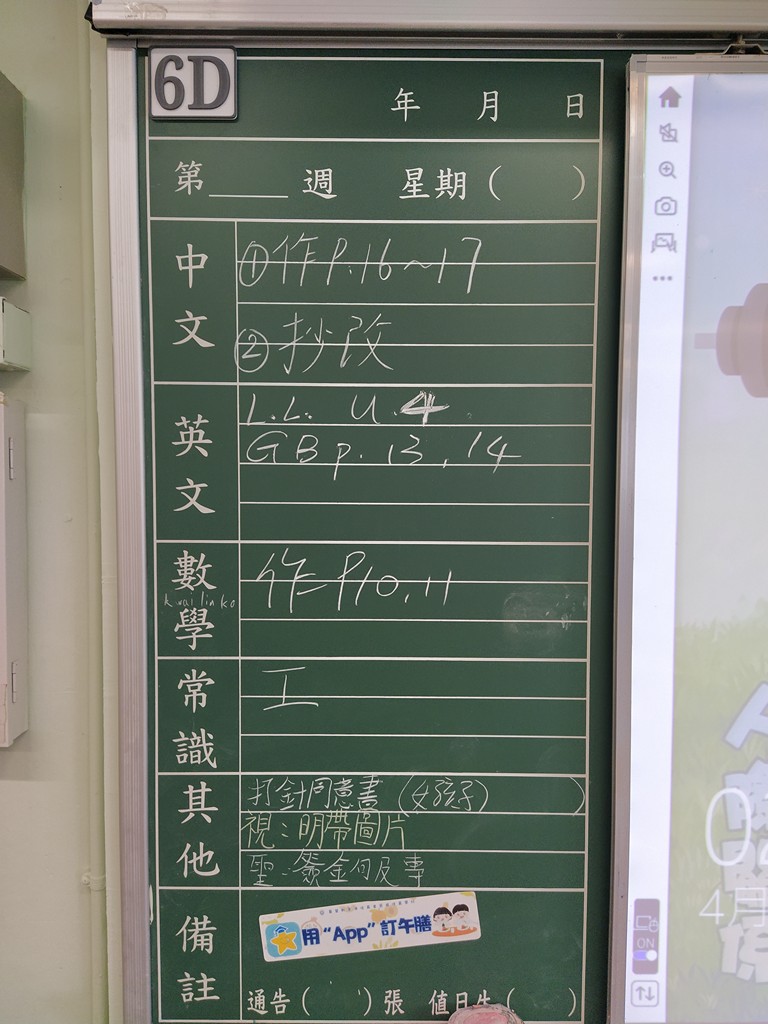 6D
年 月 日
第____週 星期( )
中文
①作P.16~17
②抄改
英文
L.L. U.4
GB p.13,14
數學
kwai lin ko
作 P10,11
常識
工
其他
打針同意書(女孩子)
視:明帶圖片
聖:簽金句及事
備註
用“App”訂午膳
通告( )張 值日生( )
ON
4月